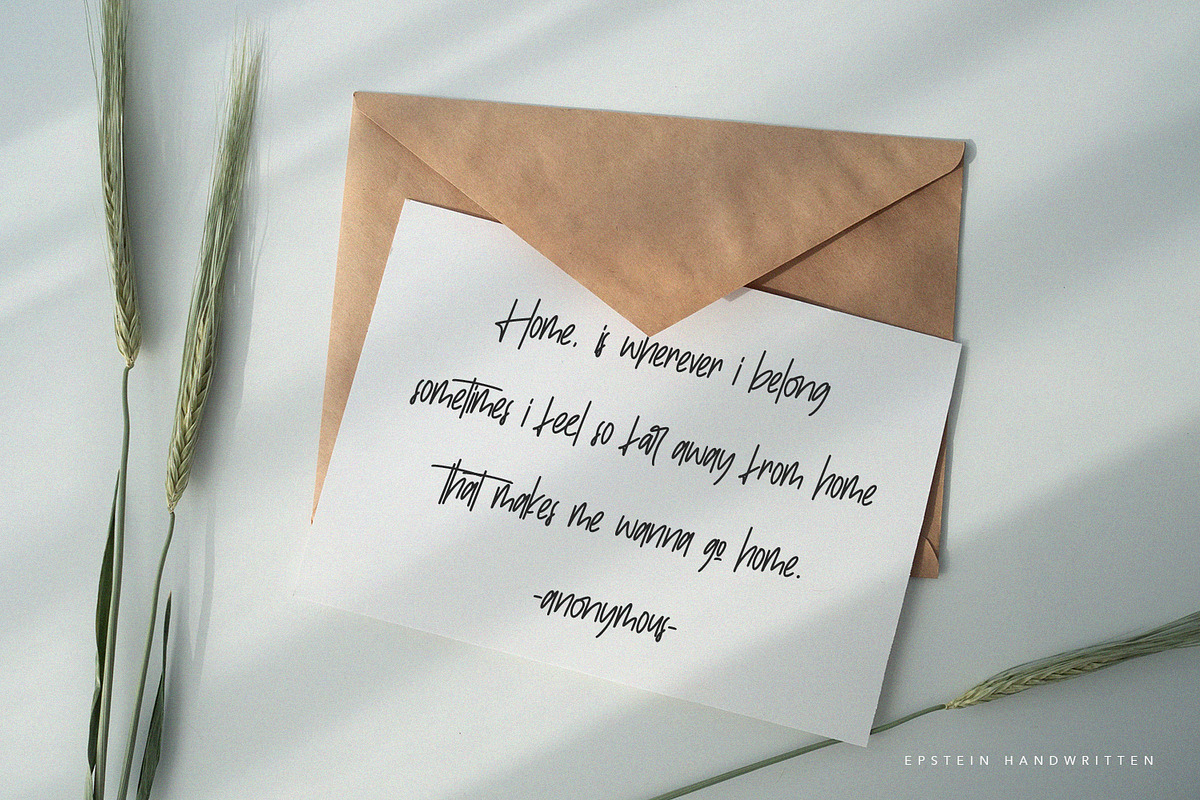 Home, is wherever i belong
sometimes i feel so far away from home
that makes me wanna go home.
-anonymous-
EPSTEIN HANDWRITTEN